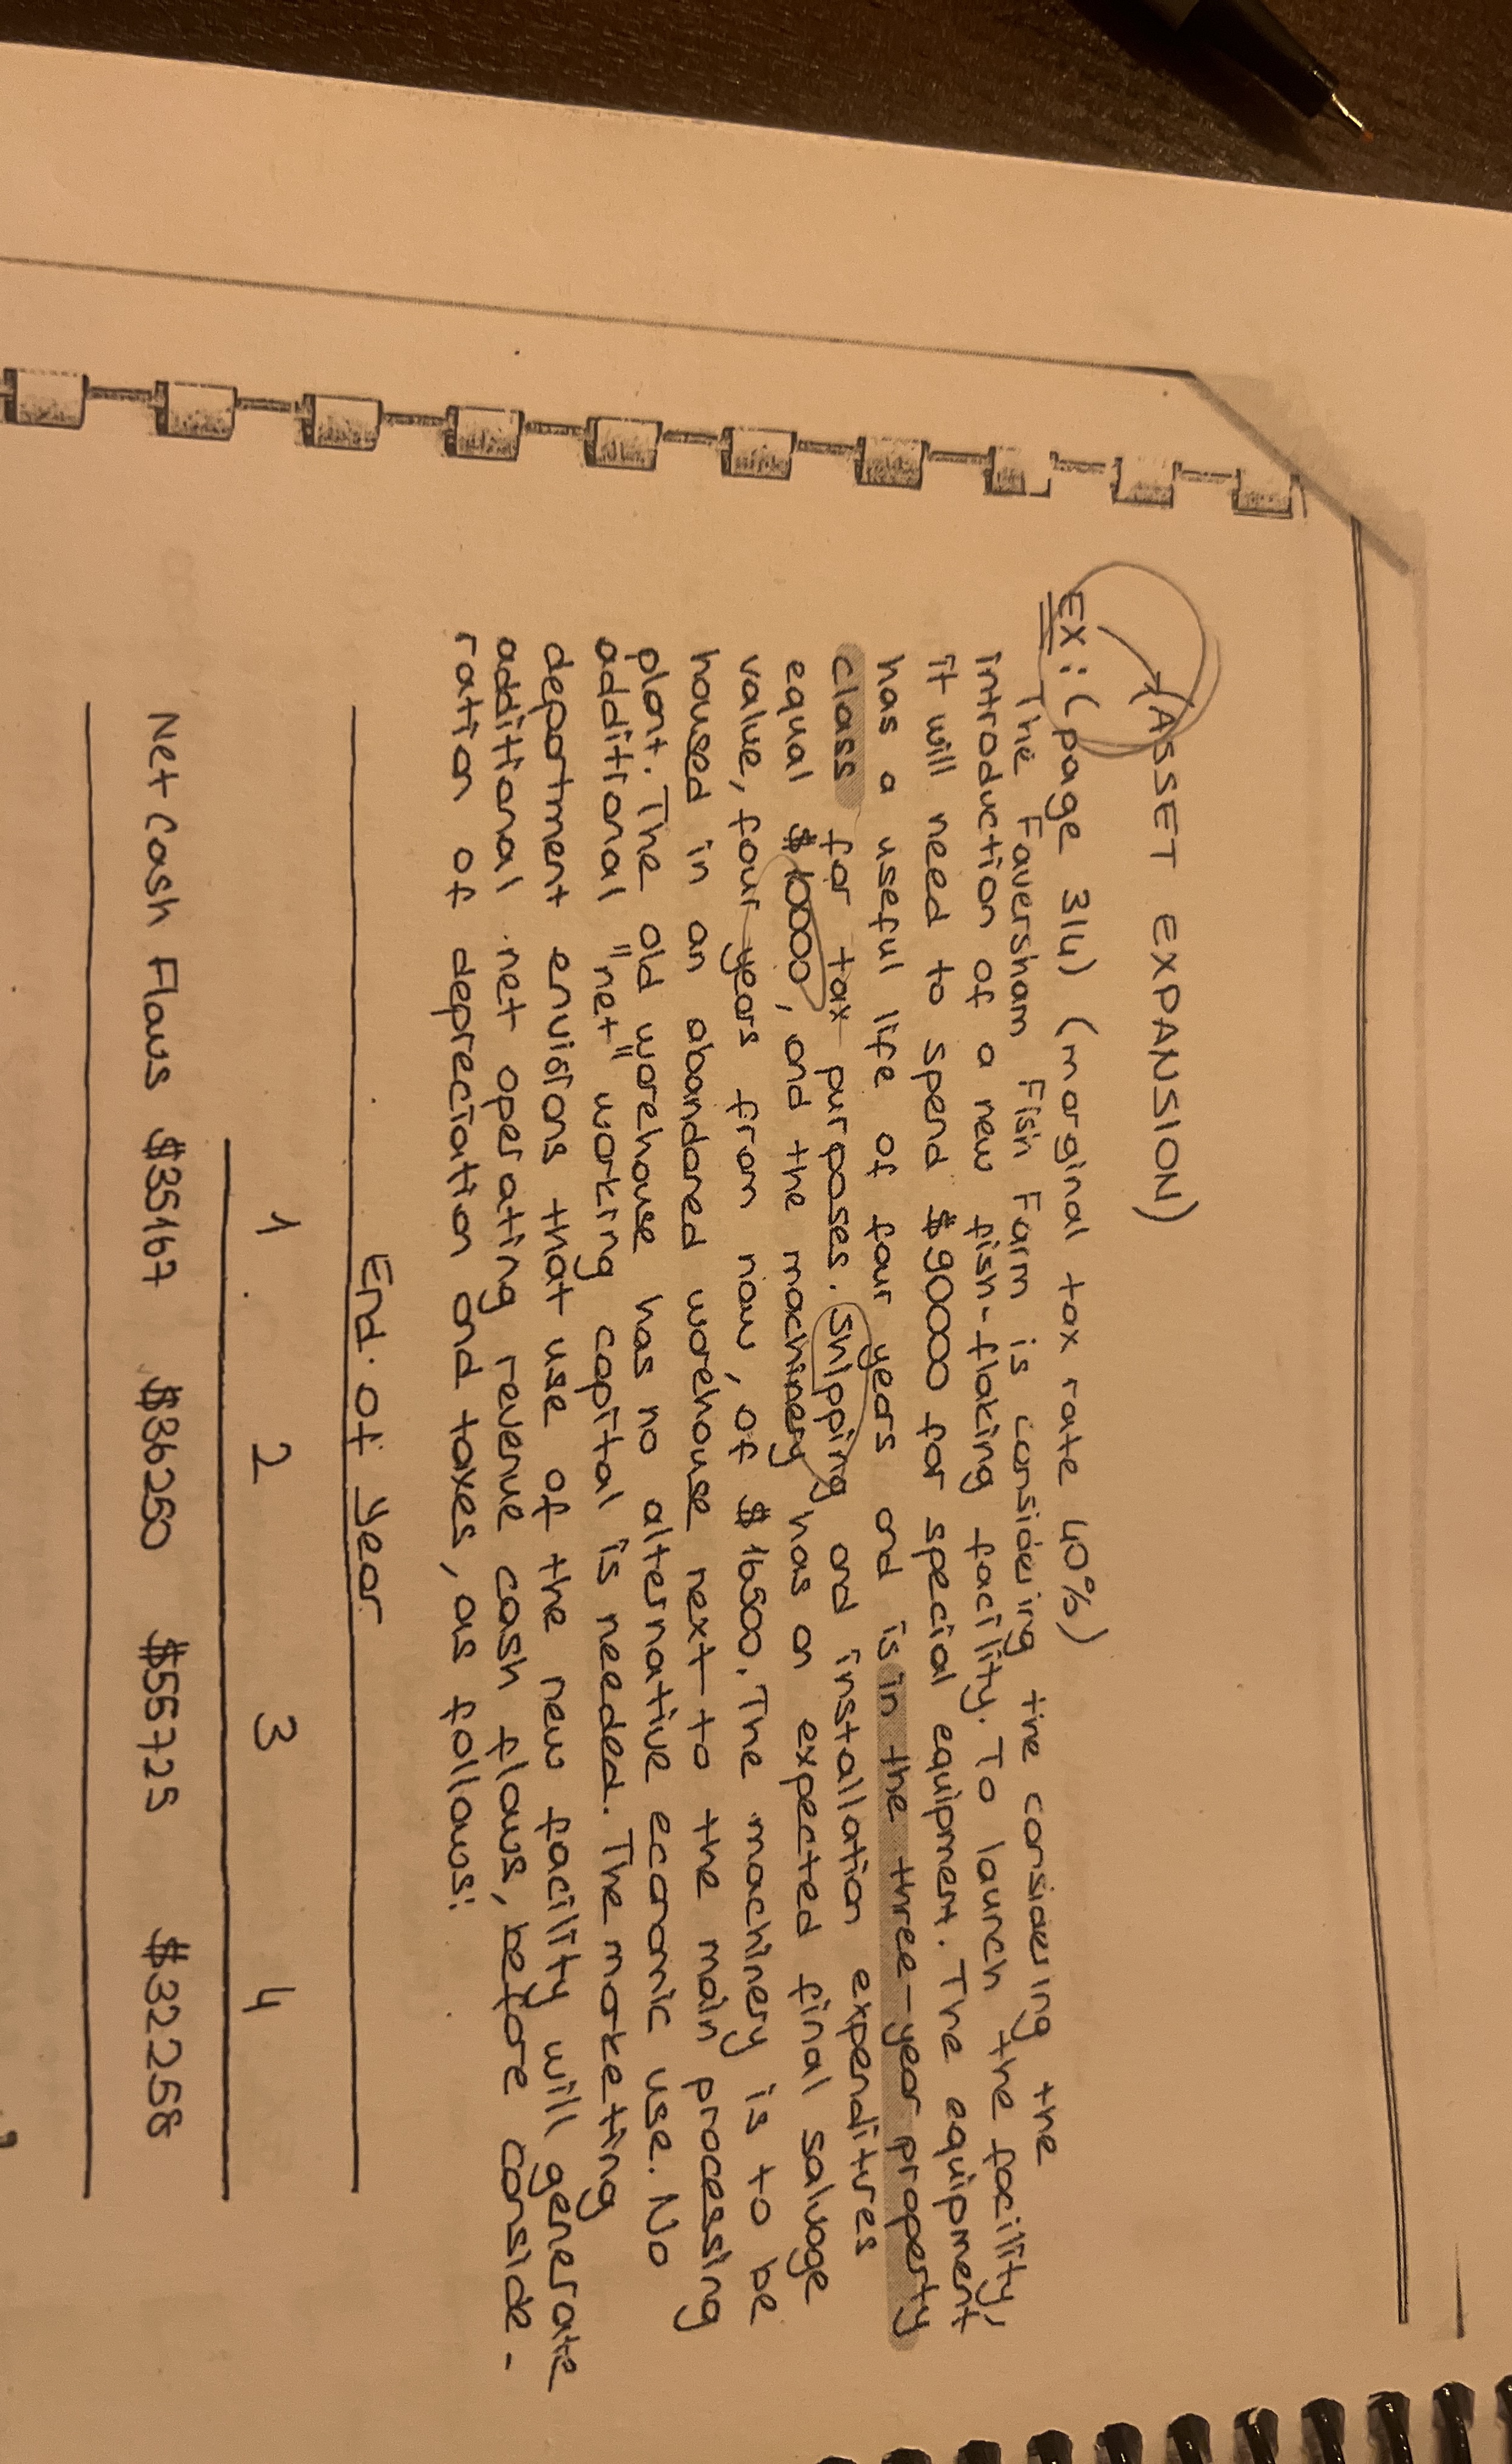 (ASSET EXPANSION)
EX: (page 314) (marginal tax rate 40%)
The Faversham Fish Farm is considering the considering the
introduction of a new fish-flaking facility. To launch the facility,
it will need to spend $90000 for special equipment. The equipment
has a useful life of four years and is in the three-year property
class for tax purposes. Shipping and installation expenditures
equal $10000, and the machinery has an expected final salvage
value, four years from now, of $16500. The machinery is to be
housed in an abandoned warehouse next to the main processing
plant. The old warehouse has no alternative economic use. No
additional "net" working capital is needed. The marketing
department envisions that use of the new facility will generate
additional net operating revenue cash flows, before conside-
ration of depreciation and taxes, as follows:
End of Year
1 2 3 4
Net Cash Flows $35167 $36250 $55725 $32258